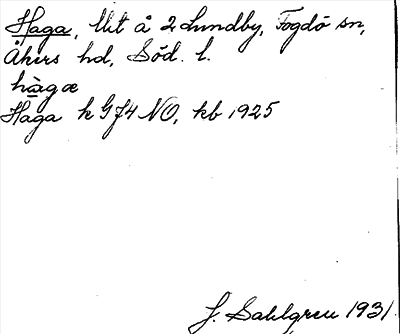 Haga, lht å 2 Lundby, Fogdö sn,
Åkers hd, Söd. l.
hàgæ
Haga k G74 NO, kb 1925
J. Sahlgren 1931